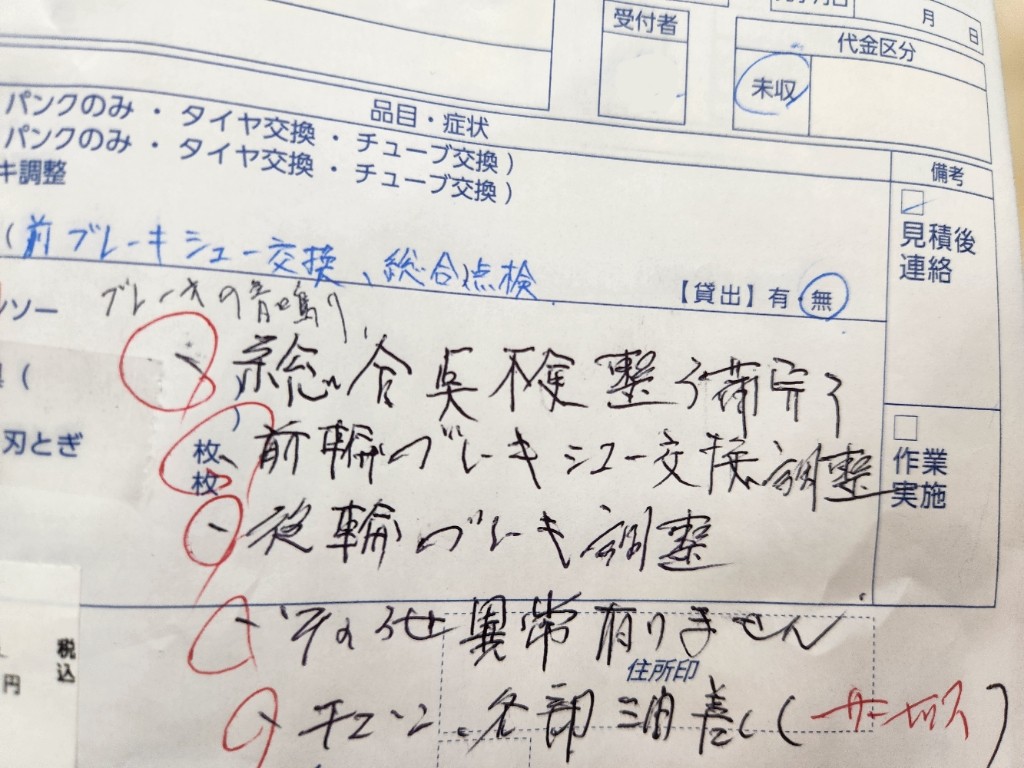 受付者
月 日
代金区分
未収
品目・症状
備考
パンクのみ ・ タイヤ交換 ・ チューブ交換 )
パンクのみ ・ タイヤ交換 ・ チューブ交換 )
キ調整
見積後
連絡
( 前ブレーキシュー交換、総合点検
【貸出】有・無
ンソー
ブレーキの音鳴り
総合点検整備完了
(
)
刃とぎ
枚
枚
前輪ブレーキシュー交換、調整
作業
実施
後輪ブレーキ調整
その他異常有りません
税込
円
住所印
チェーン、各部注油 (サービス)